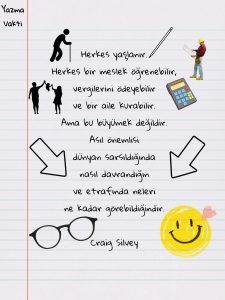 Yazma
Vakti
Herkes yaşlanır.
Herkes bir meslek öğrenebilir,
vergilerini ödeyebilir
ve bir aile kurabilir.
Ama bu büyümek değildir.
Asıl önemlisi
dünyan sarsıldığında
nasıl davrandığın
ve etrafında neleri
ne kadar görebildiğindir.
Craig Silvey